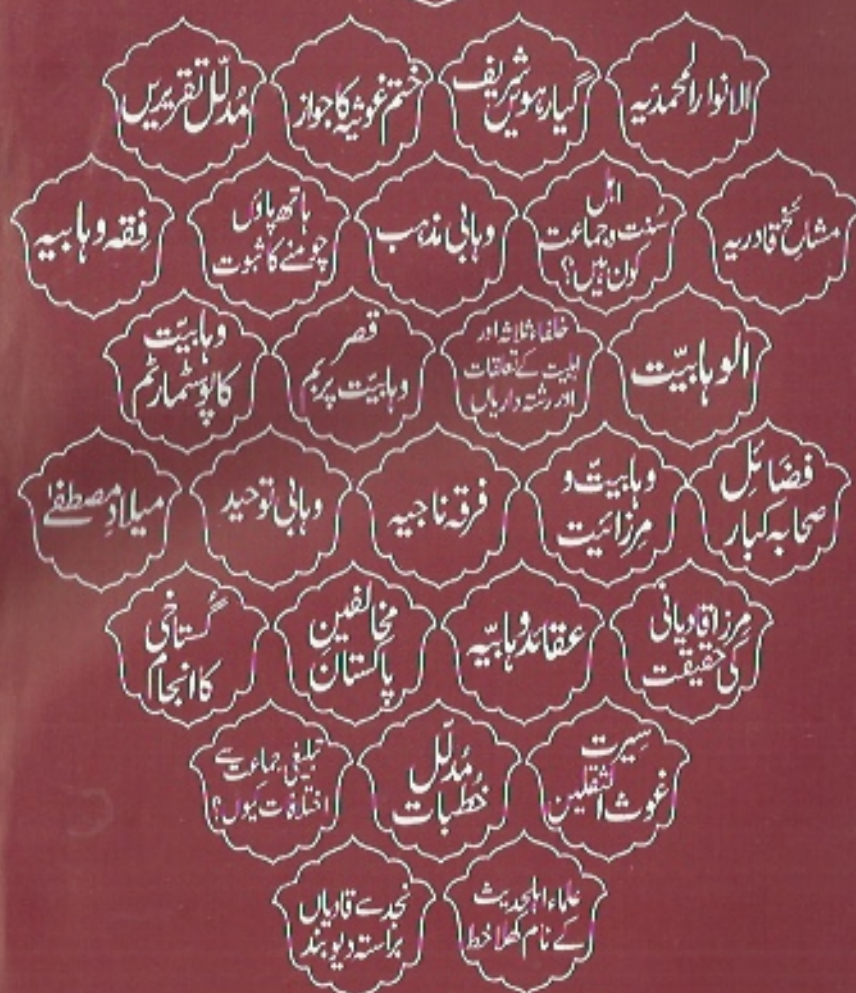 الانوار المحمدیہ
گیارہویں شریف
ختم غوثیہ کا جواز
مُدلّل تقریریں
مشائخ قادریہ
اہل
سُنت و جماعت
کون ہیں؟
وہابی مذہب
ہاتھ پاؤں
چومنے کا ثبوت
فِقہ وہابیہ
الوہابیّت
خلفاء ثلاثہ اور
اہلبیت کے تعلقات
اور رشتہ داریاں
قصر
وہابیّت پر بم
وہابیّت
کا پوسٹمارٹم
فضَائِل
صحابہ کبار
وہابیّت و
مرزائیت
فرقہ ناجیہ
وہابی توحید
میلادِ مصطفےٰ
مرزا قادیانی
کی حقیقت
عقائد وہابیّہ
مخالفینِ
پاکستان
گستاخی
کا انجام
سِیرت
غوث الثقلین
مُدلّل
خُطبات
تبلیغی جماعت سے
اختلافات کیوں؟
علماء اہلحدیث
کے نام کھلا خط
نجد سے قادیاں
براستہ دیوبند